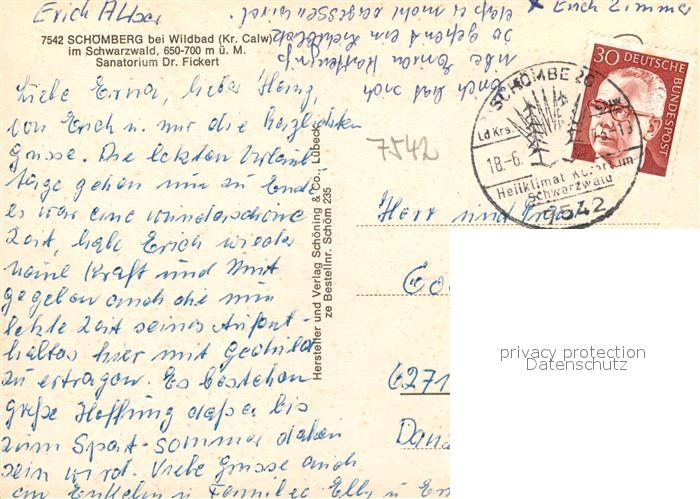 Erich Alber
7542 SCHÖMBERG bei Wildbad (Kr. Calw)
im Schwarzwald, 650-700 m ü. M.
Sanatorium Dr. Fickert
Liebe Erna, lieber Heinz,
von Erich u. mir die herzlichsten
Grüsse. Die letzten Urlaub
tage gehen nun zu Ende
es war eine wunderschöne
Zeit, habe Erich wieder
neue Kraft und Mut
gegeben auch die nun
letzte Zeit seines Aufent-
haltes hier mit Geduld
zu ertragen. Es bestehen
große Hoffnung daß er bis
zum Spät-sommer daheim
sein wird. Viele Grüsse auch
an Enkelin u Familie Elly u
x Erich Zimmer
7542
Hersteller und Verlag Schöning & Co., Lübeck
ze Bestellnr. Schöm 235
30 DEUTSCHE BUNDESPOST
SCHÖMBE
Ld Krs.
18.-6.
Heilklimat Kurort im
Schwarzwald
7542
Herr und
6271
privacy protection
Datenschutz